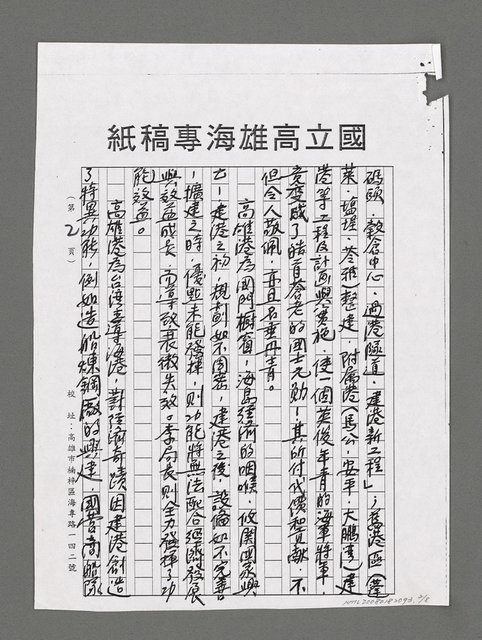 國立高雄海專稿紙
碼頭、穀倉中心、過港隧道、建港新工程」;舊港區(蓬
萊、塩埕、苓雅)整建、附屬港(馬公、安平、大鵬灣)建
港等工程及計劃與實施,使一個英俊年青的海軍將軍,
竟變成了皓首蒼老的國士元勳!其所付代價和貢献,不
但令人敬佩,亦且名垂丹青。
高雄港為國門櫥窗,海島經濟的咽喉,攸関國家興
亡!建港之初,規劃如不周密,建港之後,設備如不完善
,擴建之時,優點未能發揮,則功能將無法配合經際發展
與效益成長,而導致衰微失效。李局長則全力發揮了功
能效益。
高雄港為台灣主導海港,對經濟奇蹟因建港創造
了特異功能,例如造船煉鋼廠的興建,國營商船隊
(第2頁)
校址:高雄市楠梓區海專路一四二號